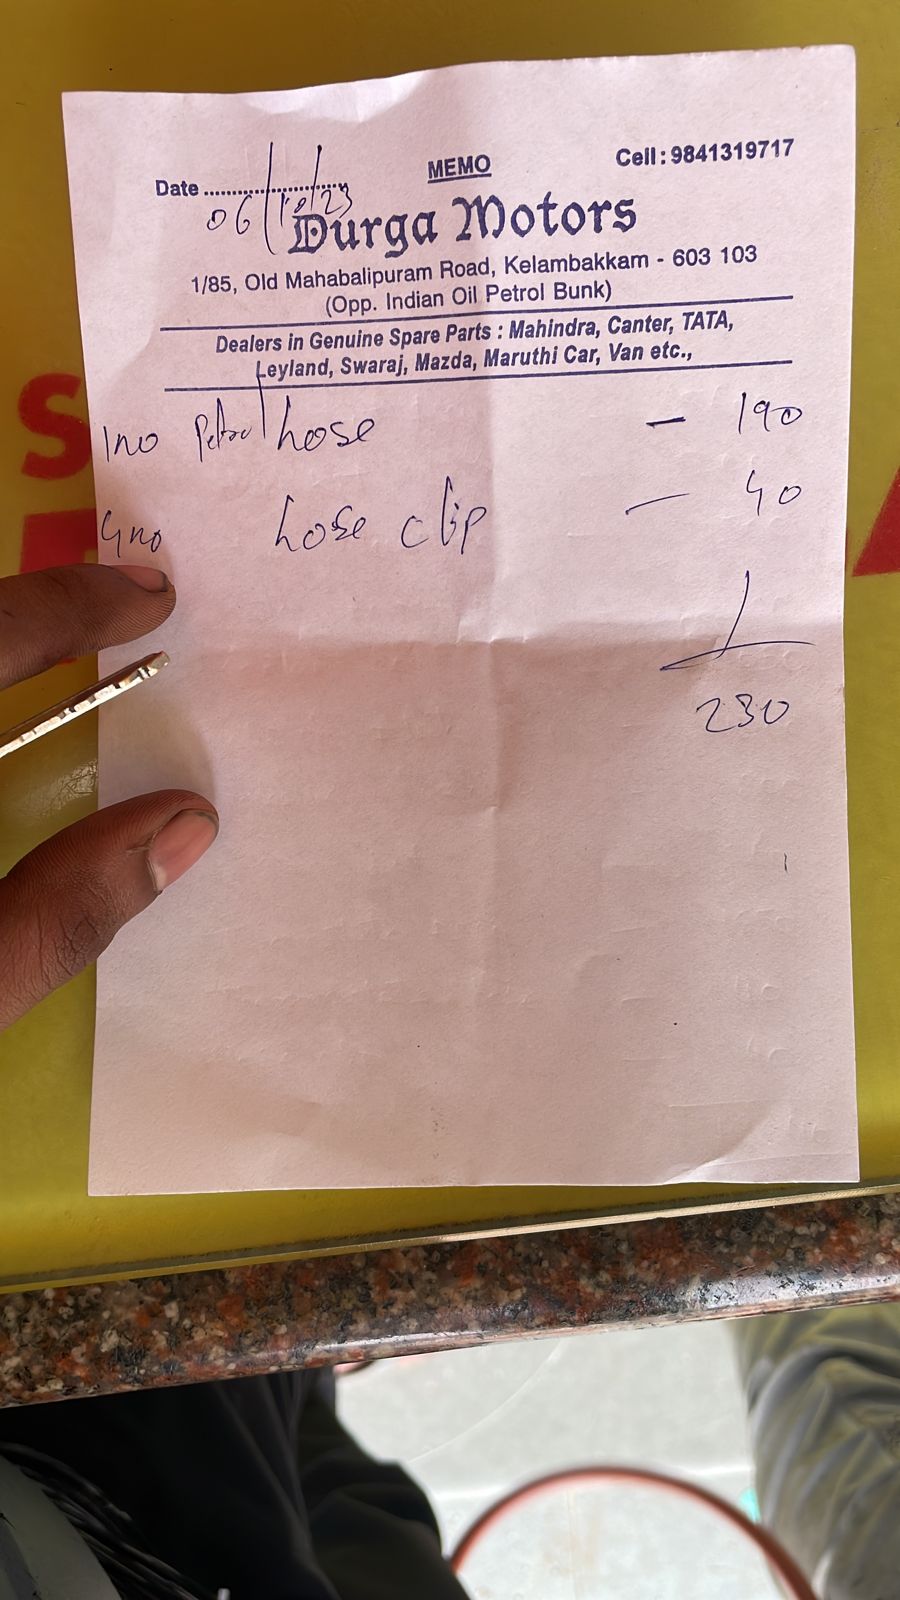 MEMO
Cell : 9841319717
Date ........................
06/10/23
Durga Motors
1/85, Old Mahabalipuram Road, Kelambakkam - 603 103
(Opp. Indian Oil Petrol Bunk)
Dealers in Genuine Spare Parts : Mahindra, Canter, TATA,
Leyland, Swaraj, Mazda, Maruthi Car, Van etc.,
1no Petrol hose - 190
4no hose clip - 40
230